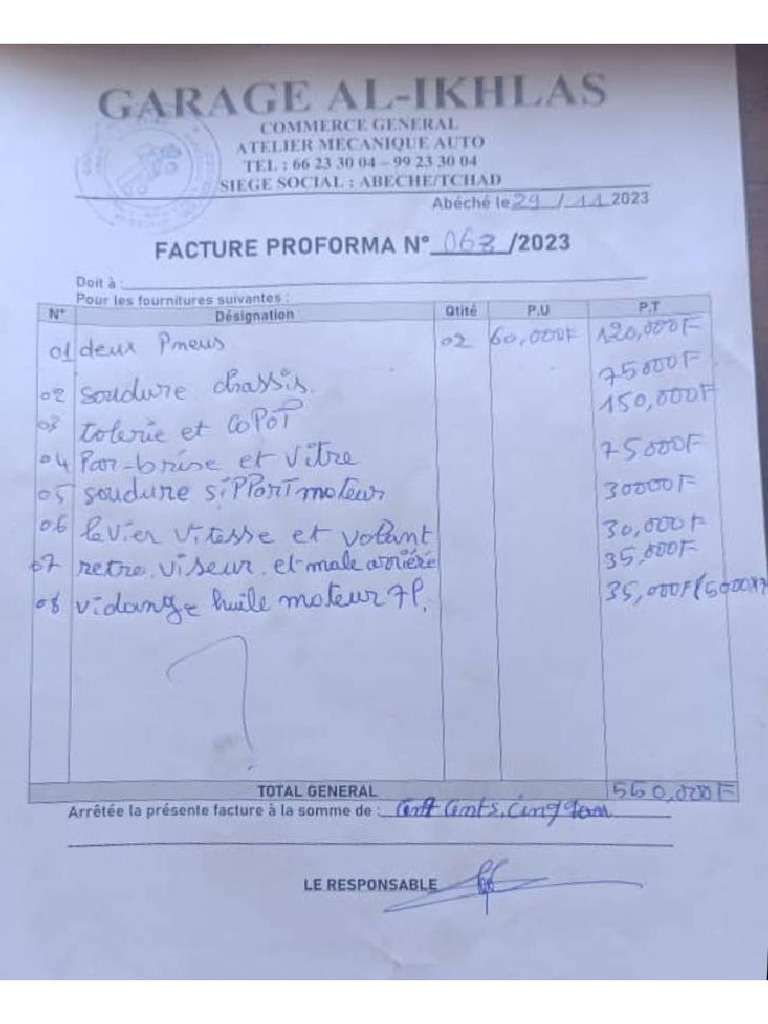 GARAGE AL-IKHLAS
COMMERCE GENERAL
ATELIER MECANIQUE AUTO
TEL : 66 23 30 04 – 99 23 30 04
SIEGE SOCIAL : ABECHE/TCHAD
Abéché le 29 / 11 2023
FACTURE PROFORMA N° 068 /2023
Doit à :
Pour les fournitures suivantes :
N° Désignation Qtité P.U P.T
01 deux Pneus 02 60,000F 120,000F
02 soudure chassis. 75000F
03 tolerie et COPOT 150,000F
04 Par-brise et Vitre 75000F
05 soudure sipport moteur 30000F
06 levier vitesse et volant 30,000F
07 retro viseur et male arriére 35,000F
08 vidange huile moteur 7P. 35,000F(5000x7
TOTAL GENERAL 550,000F
Arrêtée la présente facture à la somme de :
LE RESPONSABLE